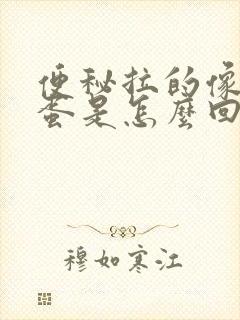 便秘拉的像
蛋是怎麼回
穆如寒江